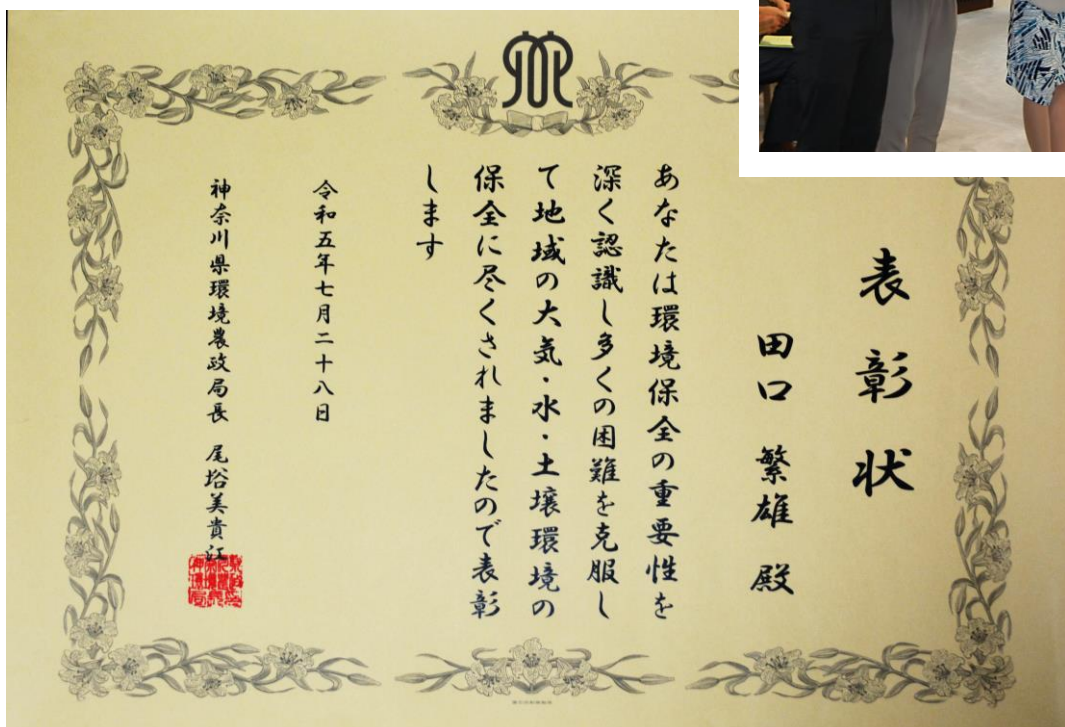 表彰状
田口 繁雄 殿
あなたは環境保全の重要性を
深く認識し多くの困難を克服し
て地域の大気・水・土壌環境の
保全に尽くされましたので表彰
します
令和五年七月二十八日
神奈川県環境農政局長 尾㟁美貴江